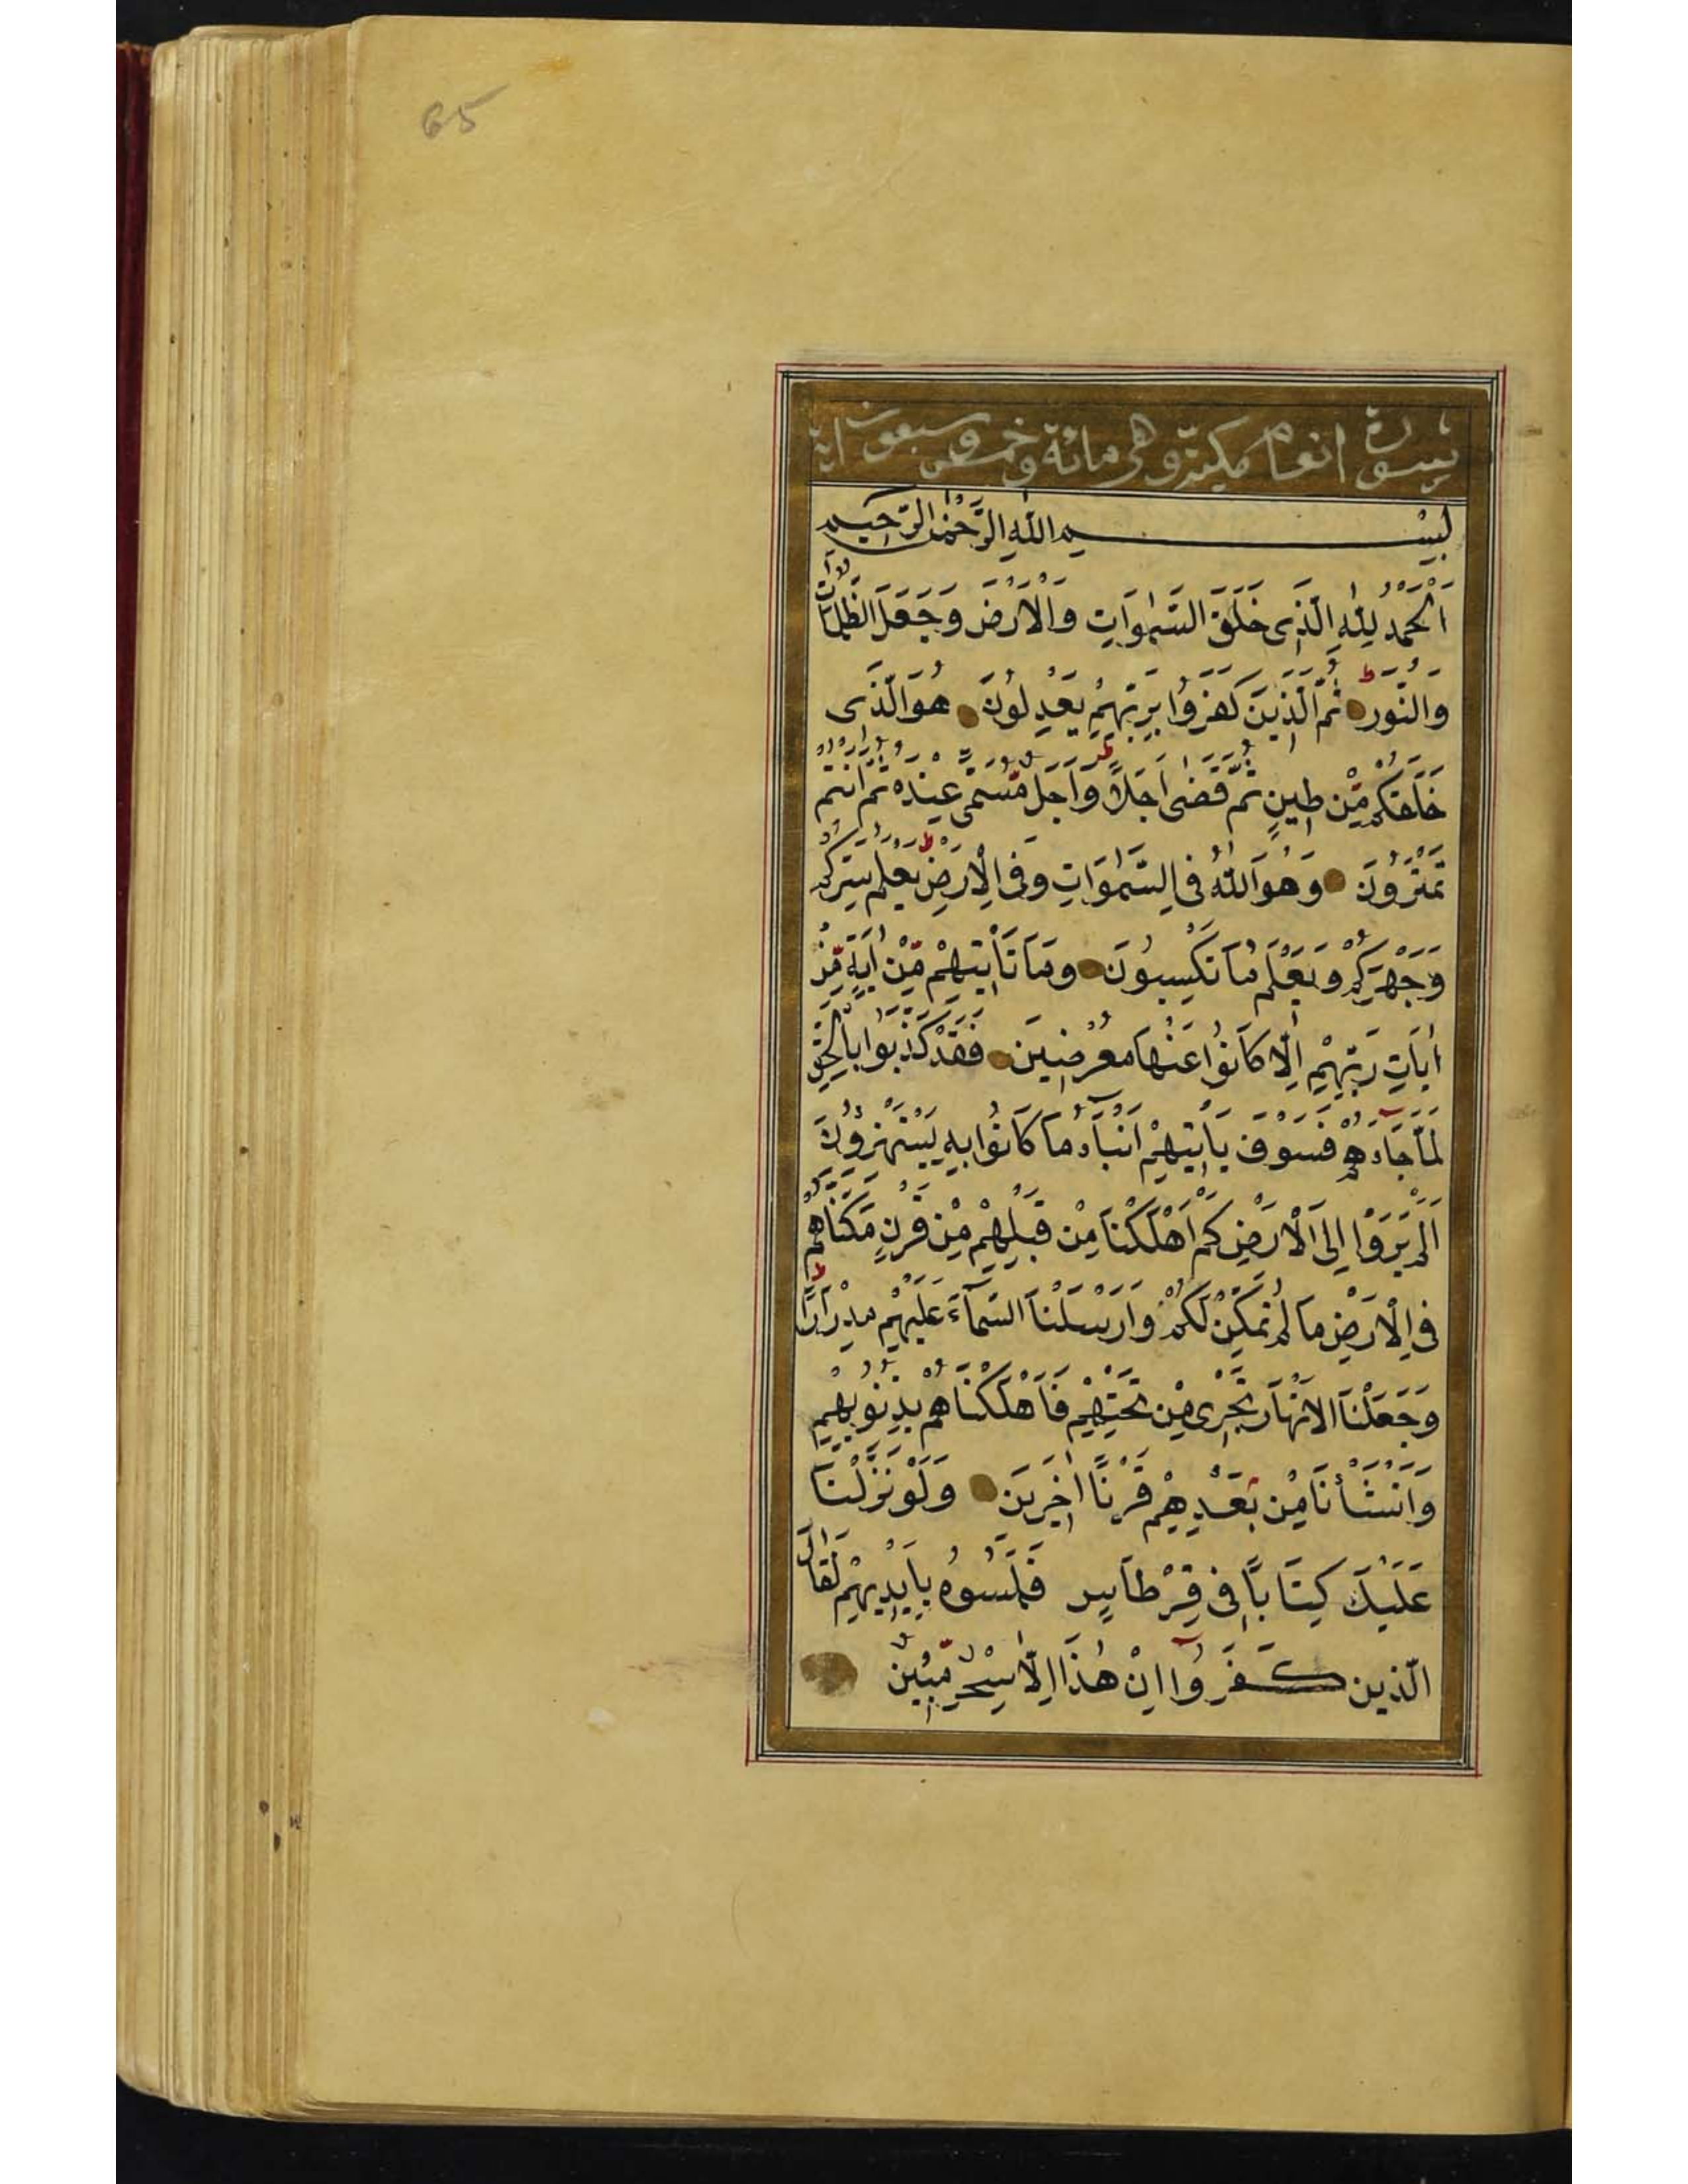 65
سورة انعام مكية وهى مائة وخمس وسبعون اية
بِسْمِ اللّٰهِ الرَّحْمٰنِ الرَّحِيمِ
اَلْحَمْدُ لِلّٰهِ الَّذِى خَلَقَ السَّمٰوَاتِ وَالْاَرْضَ وَجَعَلَ الظُّلُمَاتِ
وَالنُّورَ ط ثُمَّ الَّذِينَ كَفَرُوا بِرَبِّهِمْ يَعْدِلُونَ هُوَ الَّذِى
خَلَقَكُمْ مِّنْ طِينٍ ثُمَّ قَضٰى اَجَلًا ط وَاَجَلٌ مُّسَمًّى عِنْدَهُ ثُمَّ اَنْتُمْ
تَمْتَرُونَ وَهُوَ اللّٰهُ فِى السَّمٰوَاتِ وَفِى الْاَرْضِ ط يَعْلَمُ سِرَّكُمْ
وَجَهْرَكُمْ وَيَعْلَمُ مَا تَكْسِبُونَ وَمَا تَأْتِيهِمْ مِّنْ اٰيَةٍ مِّنْ
اٰيَاتِ رَبِّهِمْ اِلَّا كَانُوا عَنْهَا مُعْرِضِينَ فَقَدْ كَذَّبُوا بِالْحَقِّ
لَمَّا جَآءَهُمْ فَسَوْفَ يَأْتِيهِمْ اَنْبَآءُ مَا كَانُوا بِهِ يَسْتَهْزِؤُنَ
اَلَمْ يَرَوْا اِلَى الْاَرْضِ كَمْ اَهْلَكْنَا مِنْ قَبْلِهِمْ مِنْ قَرْنٍ مَكَّنَّاهُمْ
فِى الْاَرْضِ مَا لَمْ نُمَكِّنْ لَكُمْ وَاَرْسَلْنَا السَّمَآءَ عَلَيْهِمْ مِدْرَارًا ط
وَجَعَلْنَا الْاَنْهَارَ تَجْرِى مِنْ تَحْتِهِمْ فَاَهْلَكْنَاهُمْ بِذُنُوبِهِمْ
وَاَنْشَأْنَا مِنْ بَعْدِهِمْ قَرْنًا اٰخَرِينَ وَلَوْ نَزَّلْنَا
عَلَيْكَ كِتَابًا فِى قِرْطَاسٍ فَلَمَسُوهُ بِاَيْدِيهِمْ لَقَالَ
الَّذِينَ كَفَرُوٓا اِنْ هٰذَا اِلَّا سِحْرٌ مُّبِينٌ